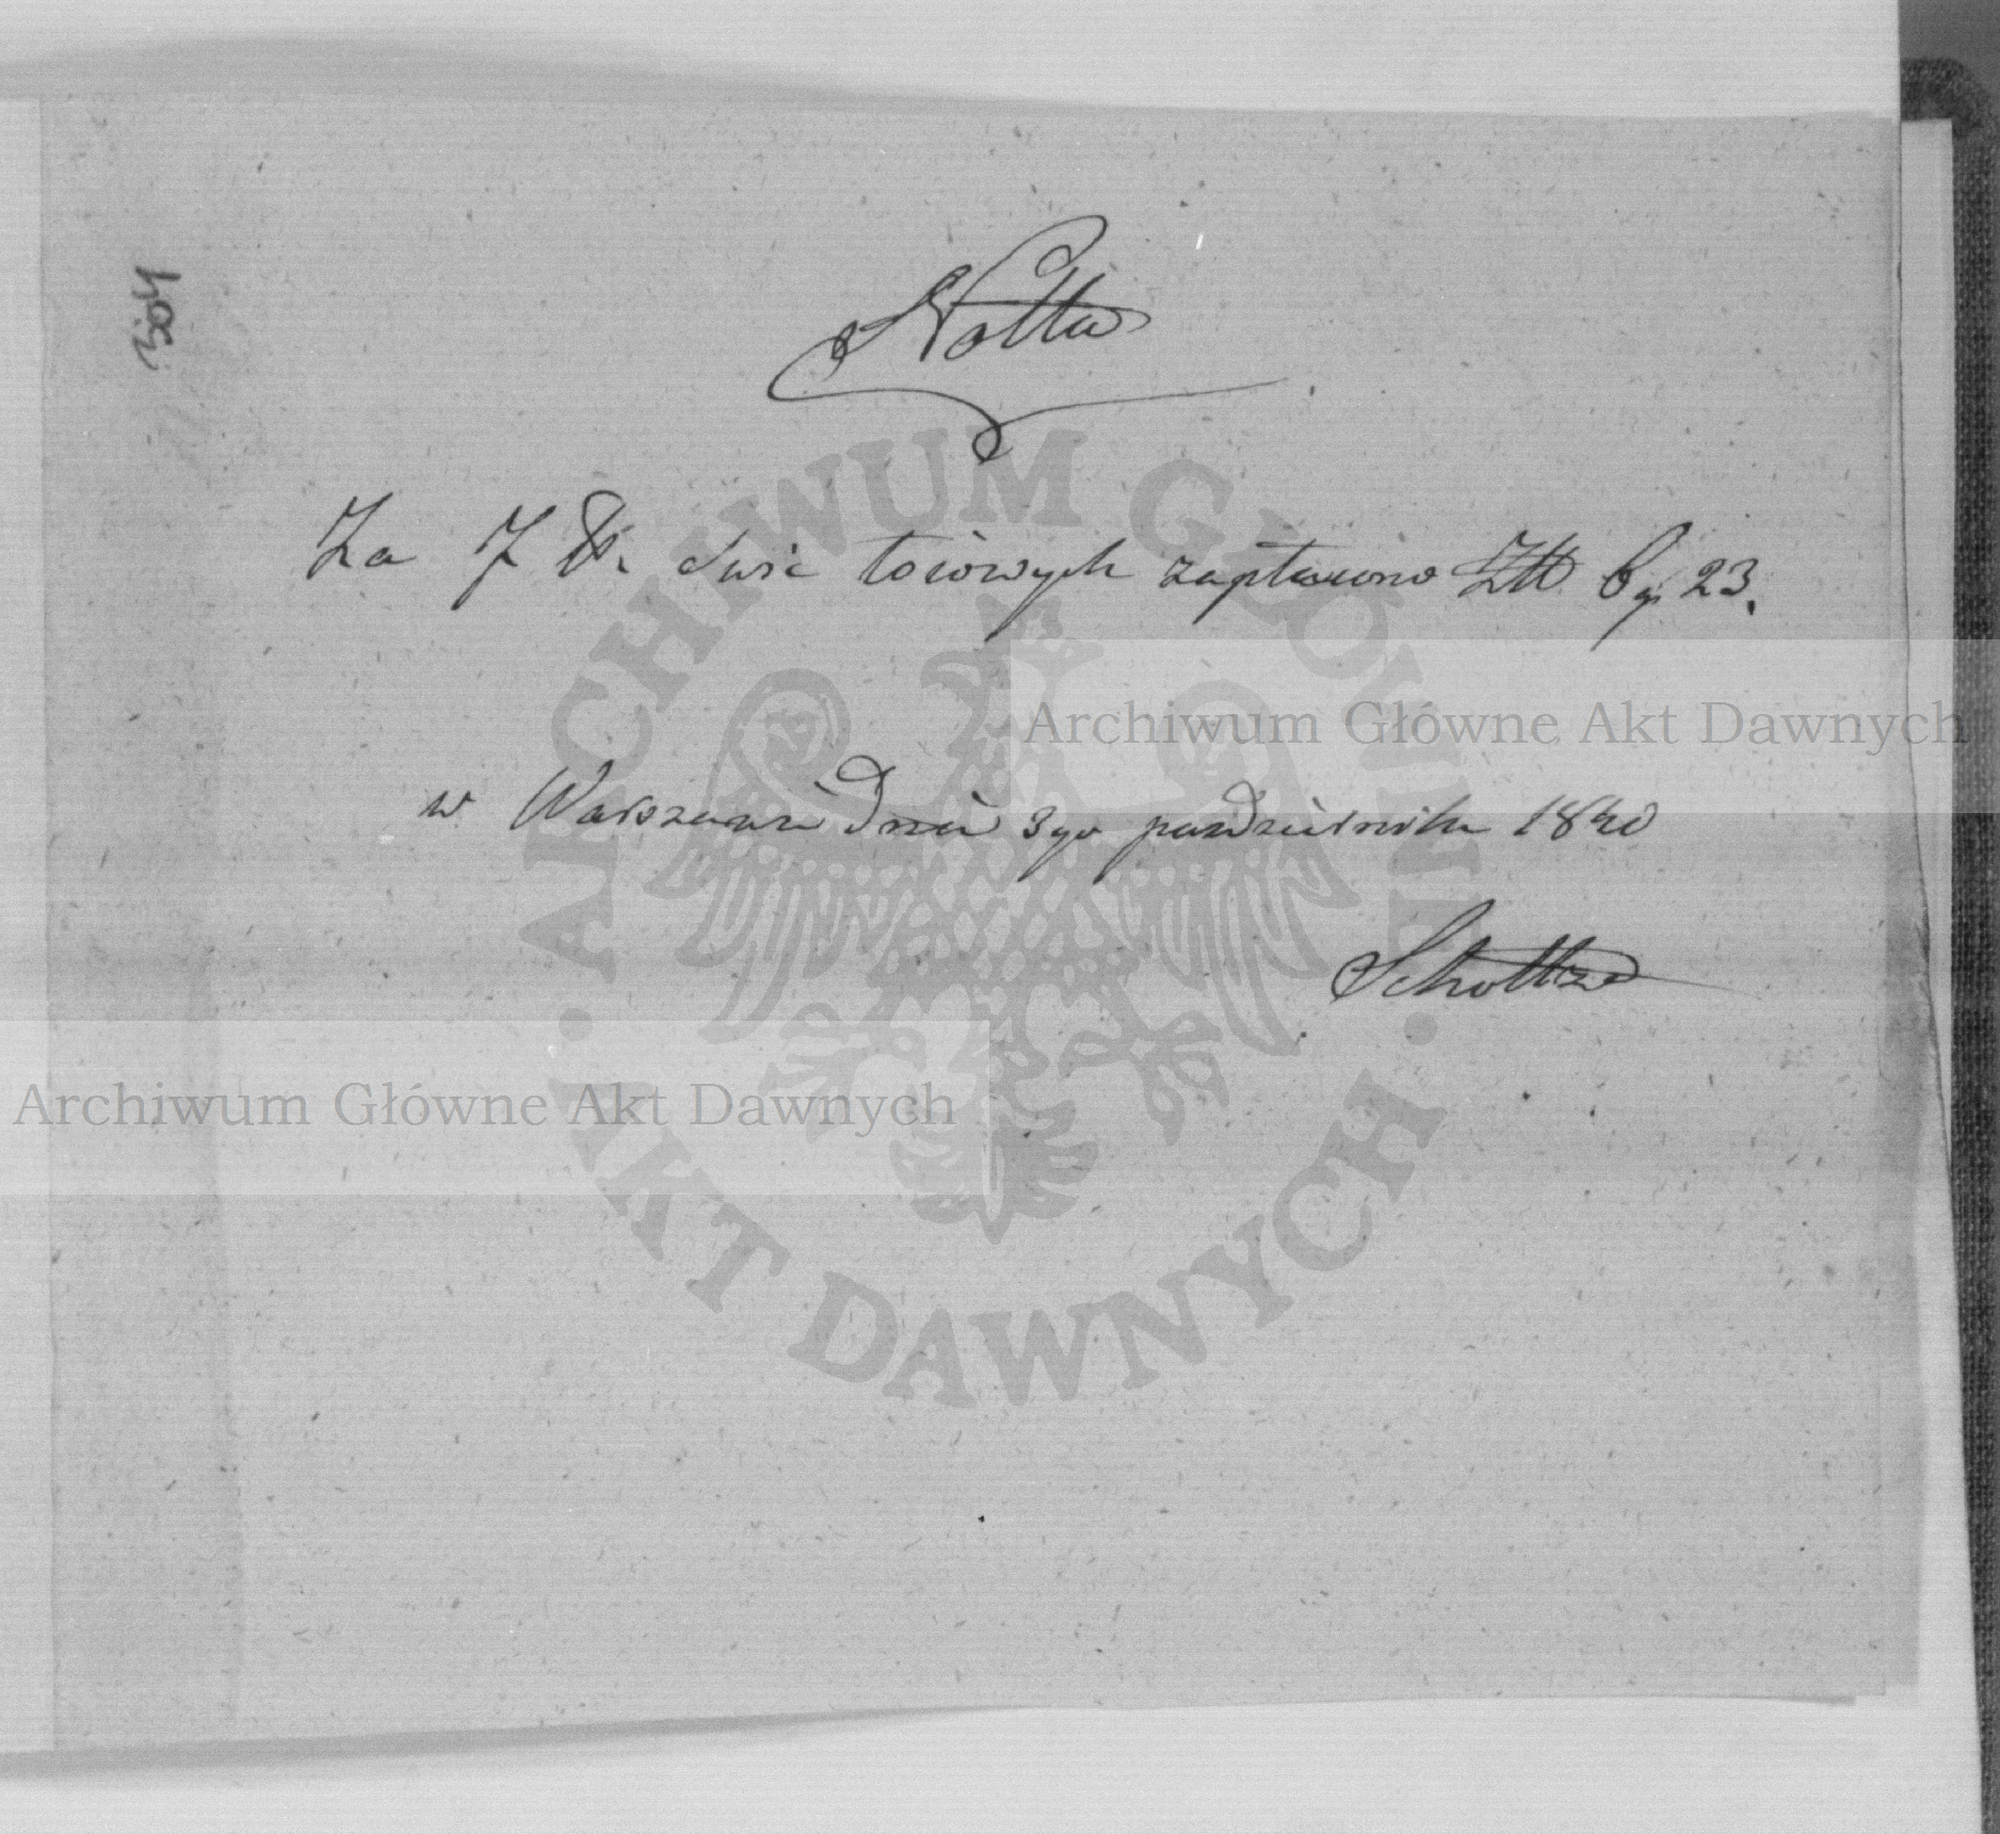 304
Notta
Za 7 świc łoiowych zapłacono Złl 6 gr 23.
w Warszawie Dnia 3go pazdziernika 1840
Scholtze
ARCHIWUM GŁÓWNE AKT DAWNYCH
Archiwum Główne Akt Dawnych
Archiwum Główne Akt Dawnych